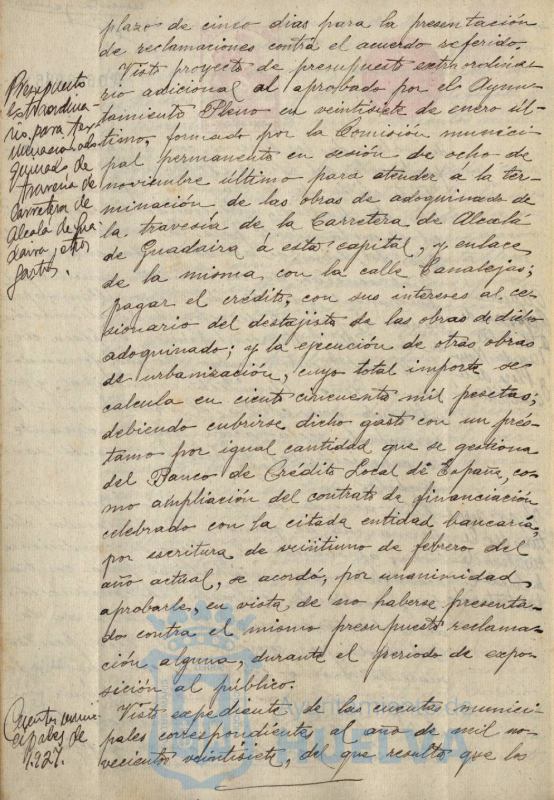 plazo de cinco días para la presentación
de reclamaciones contra el acuerdo referido.
Presupuesto
extraordina-
rio para ter-
minación ado-
quinado de
travesía de
carretera de
Alcalá de Gua-
daira y otros
gastos.
Visto proyecto de presupuesto extraordina-
rio adicional al aprobado por el Ayun-
tamiento Pleno en veintisiete de enero úl-
timo, formado por la Comisión munici-
pal permanente en sesión de ocho de
noviembre último para atender á la ter-
minación de las obras de adoquinado de
la travesía de la Carretera de Alcalá
de Guadaira á esta capital, y enlace
de la misma con la calle Canalejas;
pagar el crédito, con sus intereses al ce-
sionario del destajista de las obras de dicho
adoquinado; y la ejecución de otras obras
de urbanización, cuyo total importe se
calcula en ciento cincuenta mil pesetas;
debiendo cubrirse dicho gasto con un prés-
tamo por igual cantidad que se gestiona
del Banco de Crédito Local de España, co-
mo ampliación del contrato de financiación
celebrado con la citada entidad bancaria,
por escritura de veintiuno de febrero del
año actual, se acordó, por unanimidad
aprobarle, en vista de no haberse presenta-
do contra el mismo presupuesto reclama-
ción alguna, durante el periodo de expo-
sición al público.
Cuentas muni-
cipales de
1.927.
Visto expediente de las cuentas munici-
pales correspondiente al año de mil no-
vecientos veintisiete, del que resulta que las
HUELVA